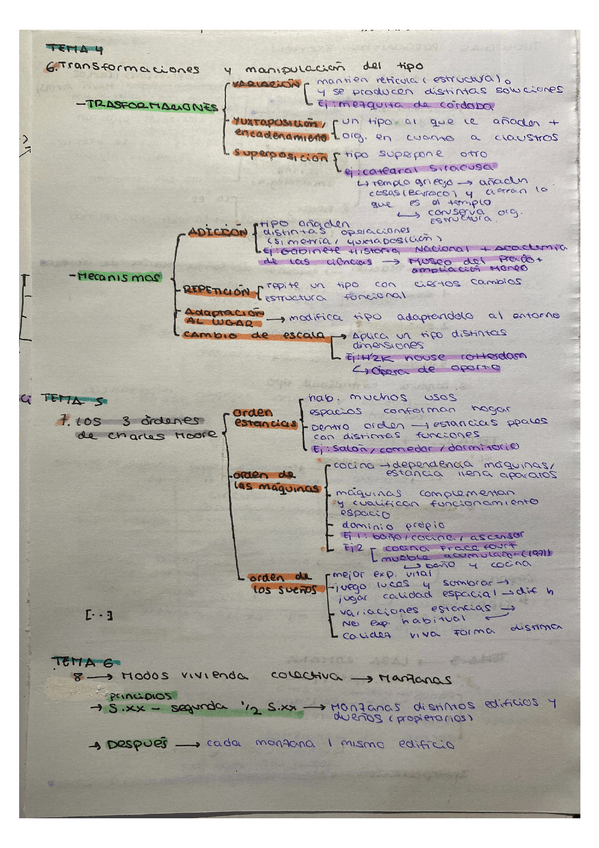 TEMA 4
6. Transformaciones y manipulación del tipo
- TRASFORMACIONES
VARIACIÓN
mantien retícula (estructural)
y se producen distintas soluciones
Ej: mezquita de córdoba
YUXTAPOSICIÓN/
encadenamiento
un tipo al que le añaden +
org. en cuanto a claustros
SUPERPOSICIÓN
tipo superpone otro
Ej: catedral Siracusa
↳ templo griego → añaden
cosas (barroco) y cierran lo
que es el templo
↳ conserva org.
estructura
- Mecanismos
ADICCIÓN
TIPO añaden
distintas operaciones
(simetría / yuxtaposición)
Ej Gabinete Historia Nacional + Academia
de las ciencias → Museo del Prado +
ampliación Moneo
REPETICIÓN
repite un tipo con ciertos cambios
estructura funcional
Adaptación
AL LUGAR
→ modifica tipo adaptandolo al entorno
cambio de escala
→ Aplica un tipo distintas
dimensiones
Ej: H2K house rotterdam
↳ Ópera de oporto
TEMA 5
7. LOS 3 órdenes
de Charles Moore
orden
estancias
hab. muchos usos
espacios conforman hogar
Dentro orden → estancias ppales
con distintas funciones
Ej: salón/comedor/dormitorio
orden de
las máquinas
cocina → dependencia máquinas/
estancia llena aparatos
máquinas complementan
y cualifican funcionamiento
espacio
dominio propio
Ej 1: baño/cocina/ascensor
Ej 2
↳ baño y cocina
orden de
los sueños
mejor exp. vital
juego luces y sombras →
jugar calidad espacial → dif h
variaciones estancias →
No exp habitual
calidez viva forma distinta
[...]
TEMA 6
8 → Modos vivienda colectiva → Manzanas
principios
→ S.XX - segunda 1/2 S.XX → Manzanas distintos edificios y
dueños (propietarios)
→ Después → cada manzana 1 mismo edificio